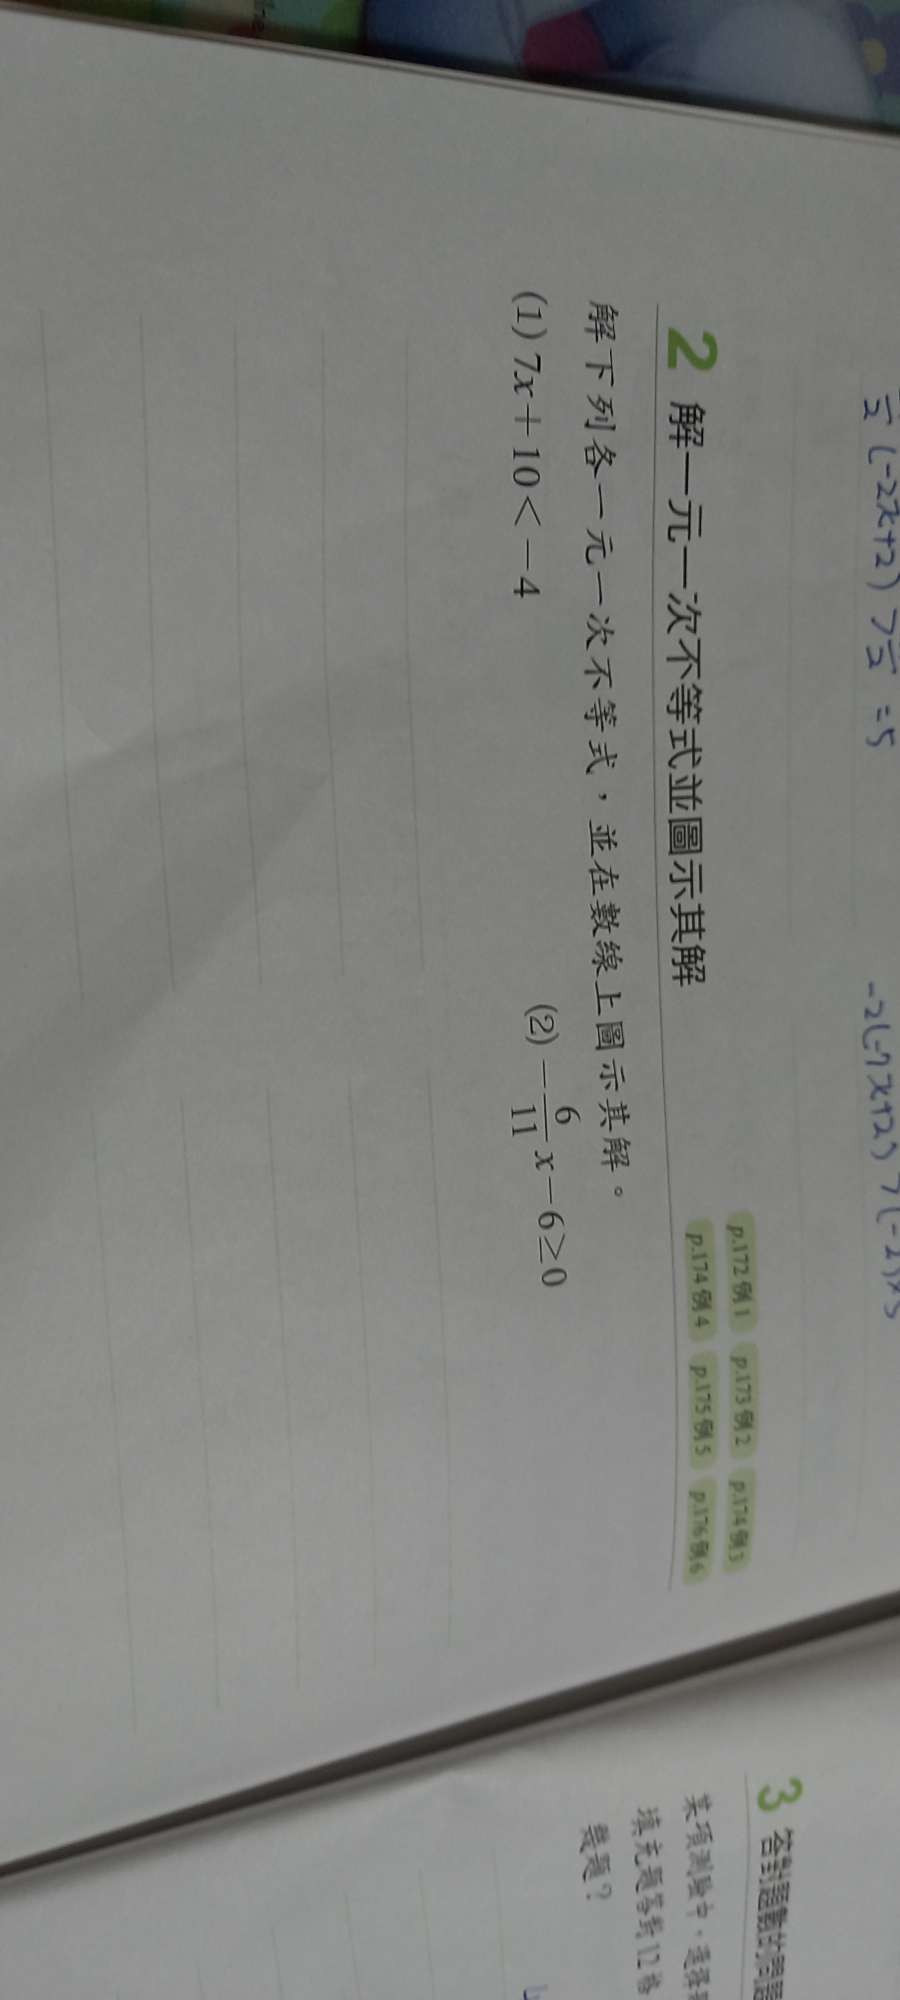 (-2x+2) > = 5
-2(-7x+2) > (-2)×5
2 解一元一次不等式並圖示其解
p.172 例1 p.173 例2 p.174 例3
p.174 例4 p.175 例5 p.176 例6
解下列各一元一次不等式，並在數線上圖示其解。
(1) 7x+10<-4
(2) -6/11 x-6≥0
3 答對題數的問題
某項測驗中，選擇
填充題答對12格
幾題？